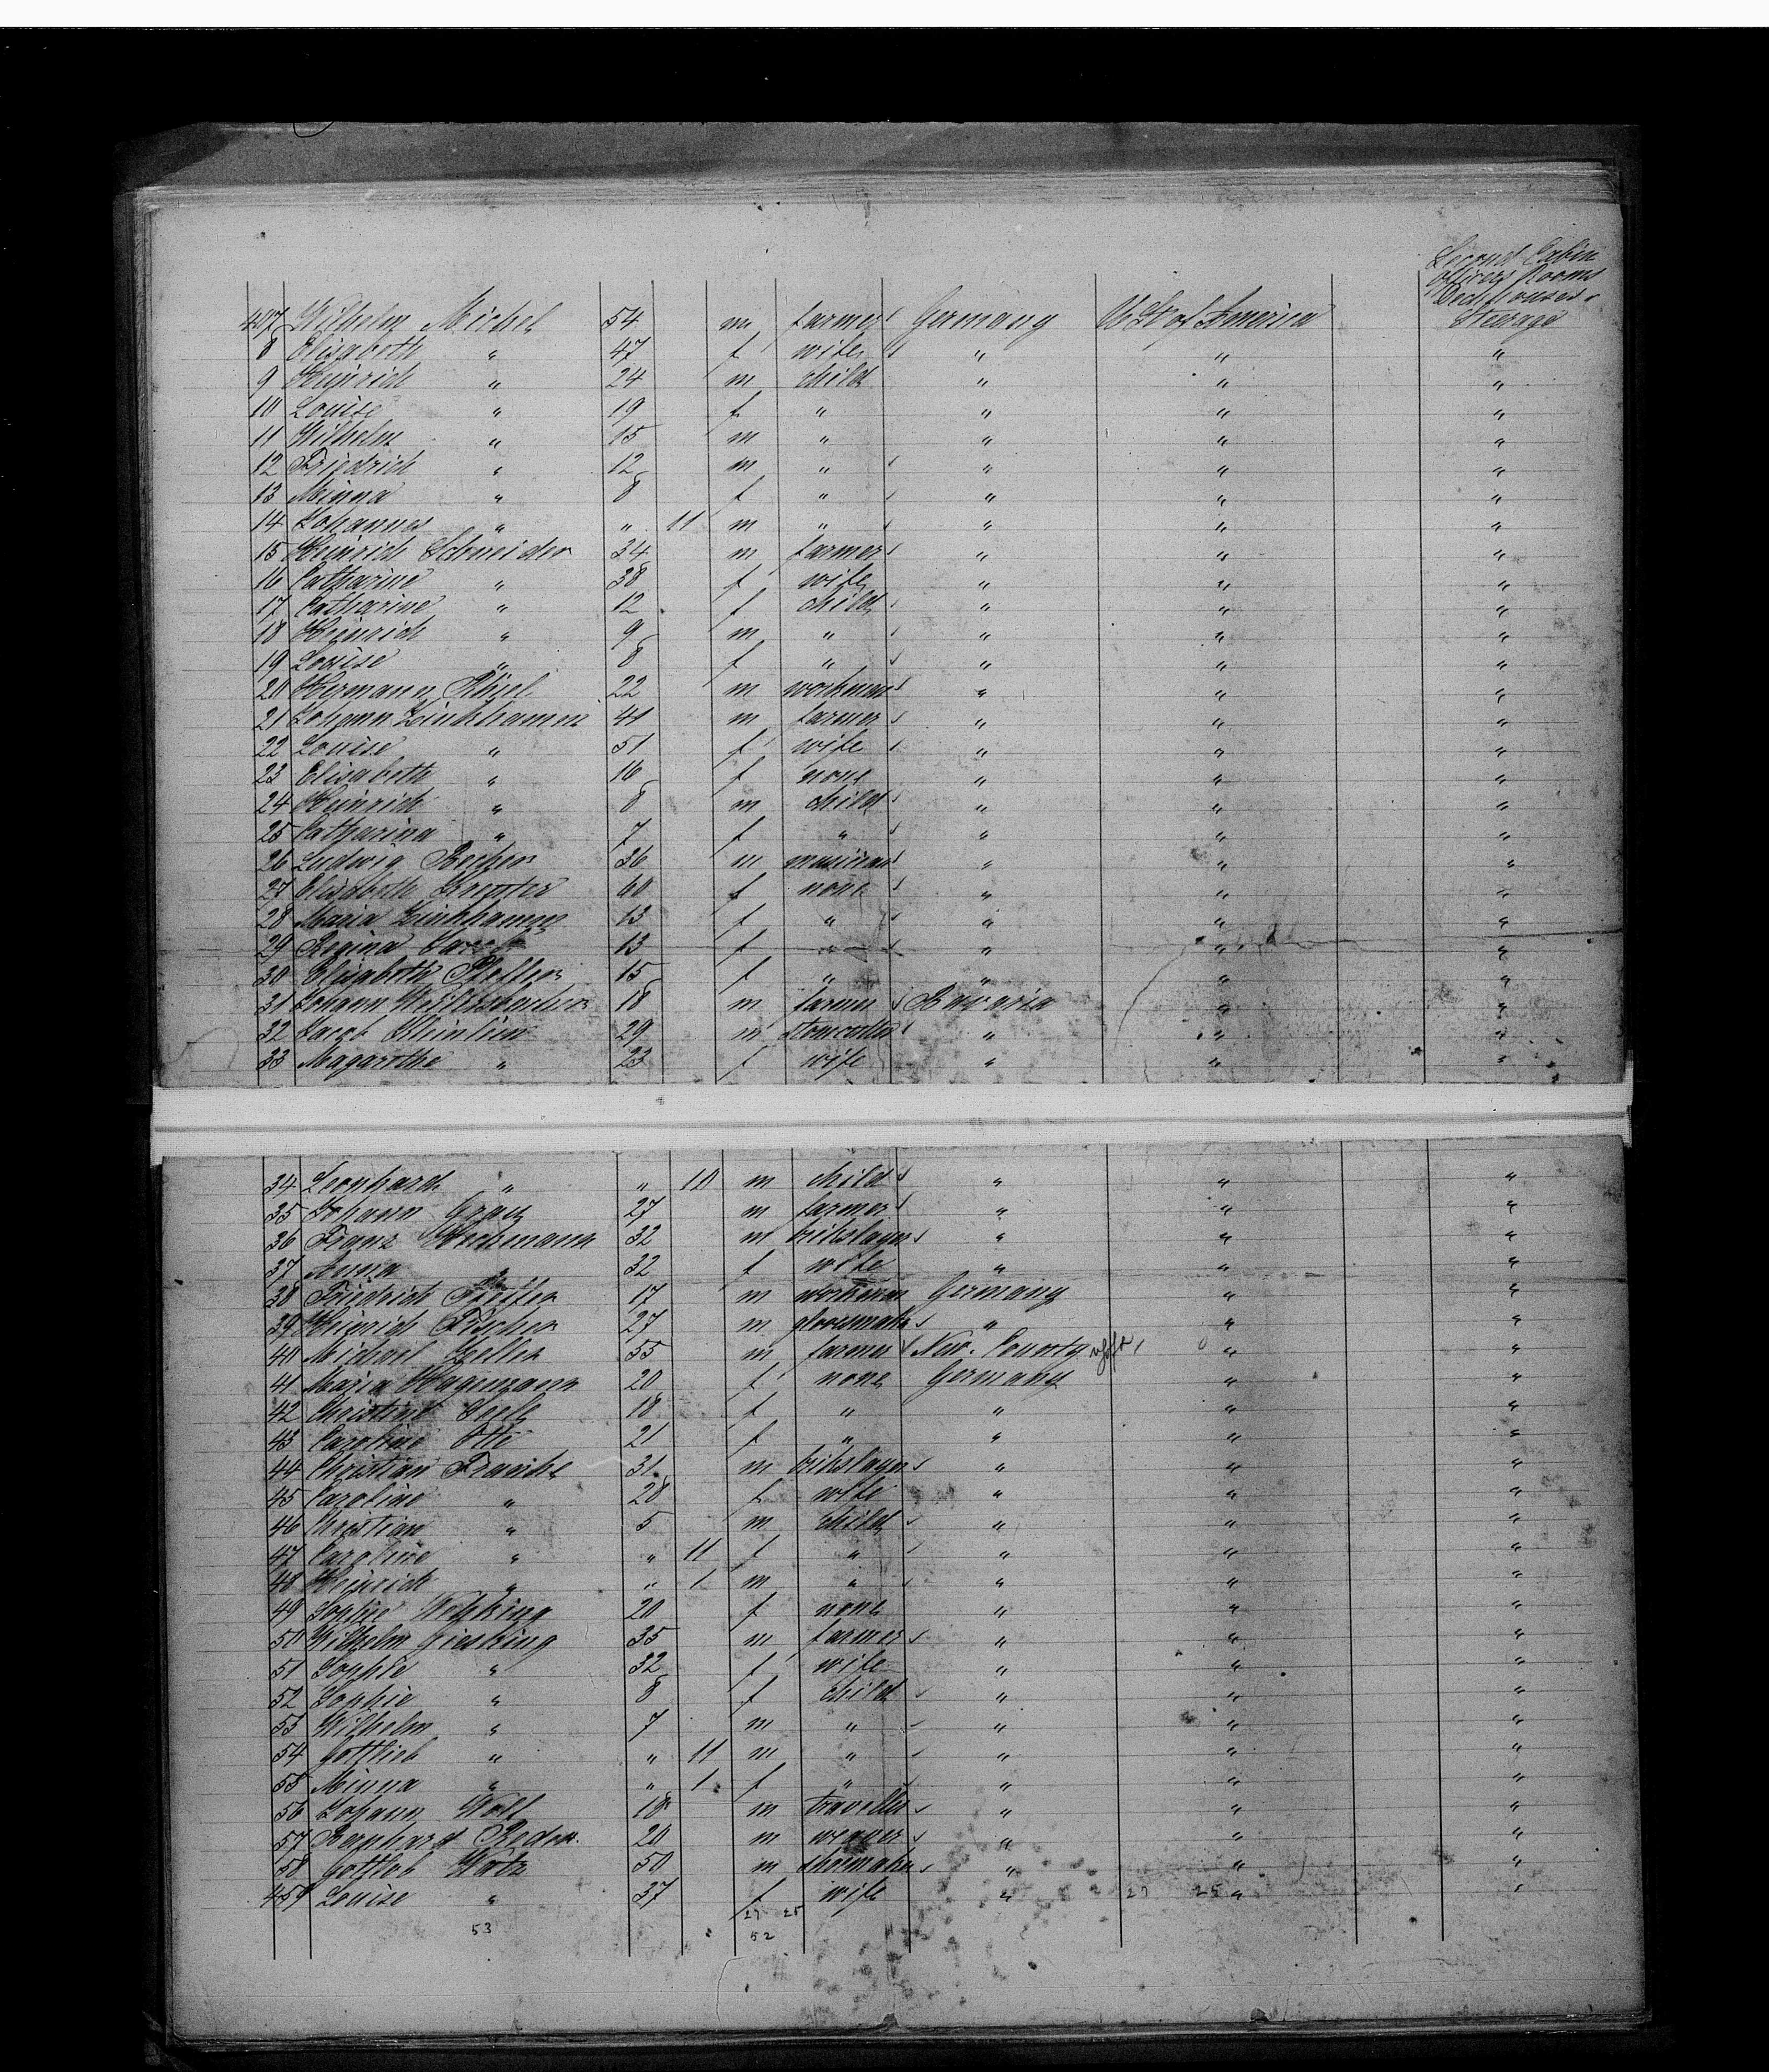 Second Cabin
Officers Rooms
Deckhouses
407 Wilhelm Michel 54 m farmer Germany U St of America Steerage
8 Elisabeth " 47 f wife " " "
9 Heinrich " 24 m child " " "
10 Louise " 19 f " " " "
11 Wilhelm " 15 m " " " "
12 Friedrich " 12 m " " " "
13 Minna " 8 f " " " "
14 Johannes " " 11 m " " " "
15 Heinrich Schneider 34 m farmer " " "
16 Catharine " 38 f wife " " "
17 Catharine " 12 f child " " "
18 Heinrich " 9 m " " " "
19 Louise " 8 f " " " "
20 Hermann 22 m workman " " "
21 Johann 41 m farmer " " "
22 Louise " 51 f wife " " "
23 Elisabeth " 16 f none " " "
24 Heinrich " 8 m child " " "
25 Catharina " 7 f " " " "
26 Ludwig Becher 36 m musician " " "
27 Elisabeth 60 f none " " "
28 Maria 13 f " " " "
29 Regina 13 f " " " "
30 Elisabeth 15 f " " " "
31 Johann 18 m farmer Bavaria " "
32 Jacob 29 m stonecutter " " "
33 Magarethe " 23 f wife " " "
34 Leonhard " " 10 m child " " "
35 Johann 27 m farmer " " "
36 Franz 32 m brikslayer " " "
37 Anna " 32 f wife " " "
38 Friedrich 17 m workman Germany " "
39 Heinrich Fischer 27 m glovemaker " " "
40 Michael Zeller 55 m farmer New. County " "
41 Maria Hagemann 20 f none Germany " "
42 Christine 18 f " " " "
43 Caroline Otte 21 f " " " "
44 Christian Franke 31 m brikslayer " " "
45 Caroline " 28 f wife " " "
46 Christian " 5 m child " " "
47 Caroline " " 11 f " " " "
48 Heinrich " " 1 m " " " "
49 Sophie 20 f none " " "
50 Wilhelm Gieseking 35 m farmer " " "
51 Sophie " 32 f wife " " "
52 Sophie " 8 f child " " "
53 Wilhelm " 7 m " " " "
54 Gottlieb " " 11 m " " " "
55 Minna " " 1 f " " " "
56 Johann Woll 18 m traveller " " "
57 Bernhard Reder 20 m weaver " " "
58 Gottlob Wotz 50 m shoemaker " " "
459 Louise " 37 f wife " 27 25 " "
27 25
53 52